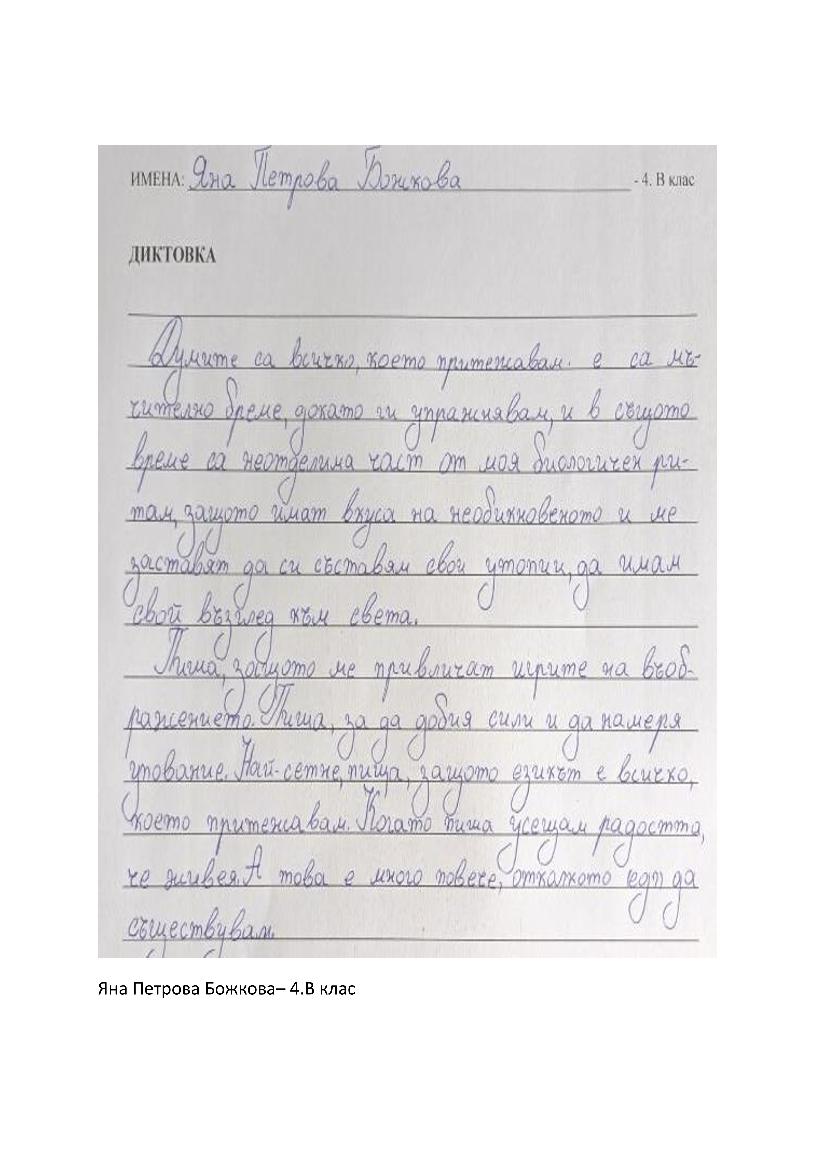 ИМЕНА: Яна Петрова Божкова - 4. В клас
ДИКТОВКА
Думите са всичко, което притежавам. е са мъ-
чително бреме, докато ги упражнявам, и в същото
време са неотделима част от моя биологичен ри-
там, защото имат вкуса на необикновеното и ме
заставят да си съставям свои утопии, да имам
свой възглед към света.
Пиша, защото ме привличат игрите на въоб-
ражението. Пиша, за да добия сили и да намеря
упование. Най-сетне, пиша, защото езикът е всичко,
което притежавам. Когато пиша усещам радостта,
че живея. А това е много повече, отколкото да
съществувам.
Яна Петрова Божкова– 4.В клас